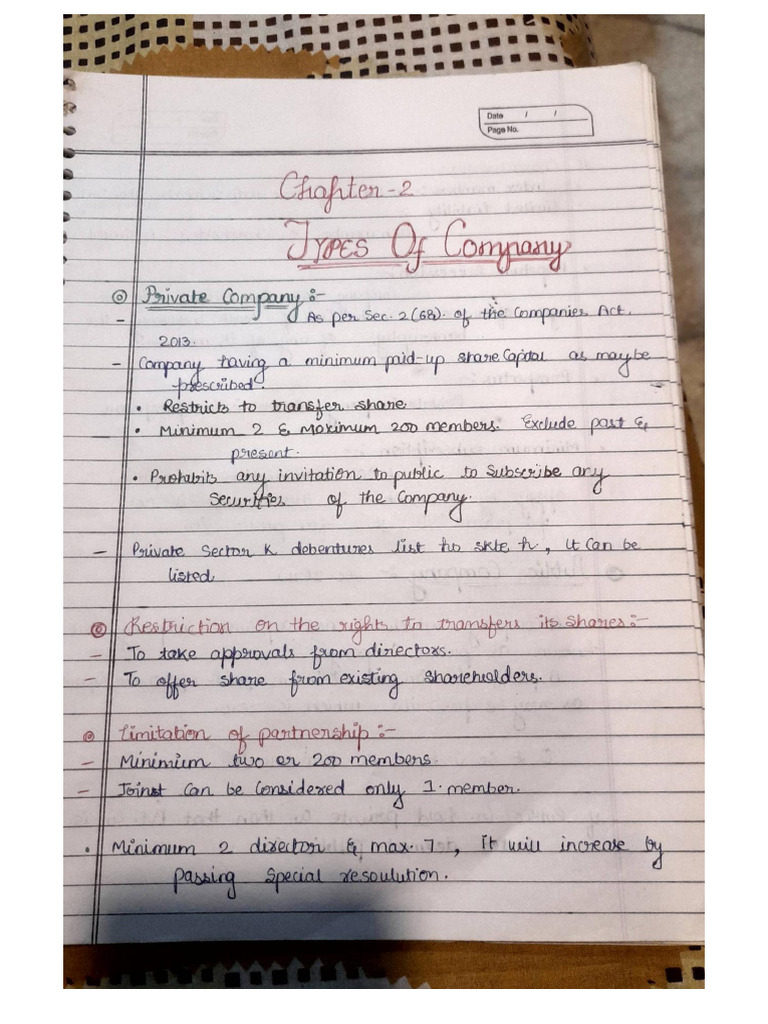 Date / /
Page No.
Chapter-2
Types Of Company
Private Company :-
- As per Sec. 2(68). of the Companies Act.
2013.
- Company having a minimum paid-up share Capital as maybe
prescribed.
• Restricts to transfer share
• Minimum 2 & Maximum 200 members. Exclude past &
present.
• Prohabits any invitation to public to Subscribe any
Securities of the Company.
- Private Sector k debentures list ho skte h, it can be
listed
Restriction on the rights to transfers its shares:-
- To take approvals from directors.
- To offer share from existing shareholders.
Limitation of partnership :-
- Minimium two or 200 members.
- Joinst can be Considered only 1. member.
• Minimum 2 director & max. 7, it will increase by
passing Special resoulution.